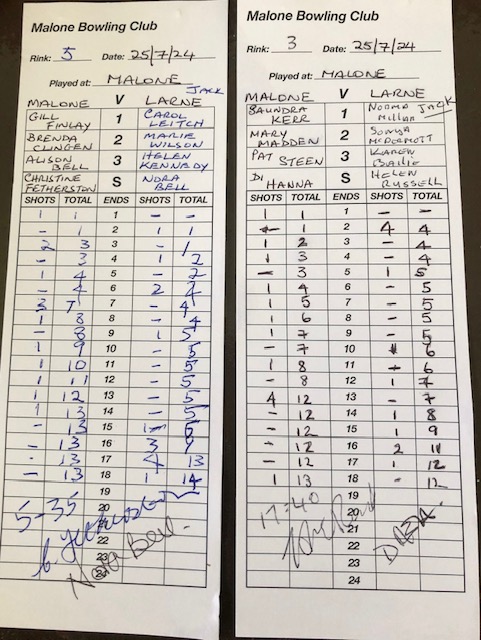 Malone Bowling Club
Rink: 5 Date: 25/7/24
Played at: MALONE
JACK
MALONE V LARNE
GILL FINLAY 1 CAROL LEITCH
BRENDA CLINGEN 2 MARIE WILSON
ALISON BELL 3 HELEN KENNEDY
CHRISTINE FETHERSTON S NORA BELL
SHOTS TOTAL ENDS SHOTS TOTAL
1 1 1 - -
- 1 2 1 1
2 3 3 - 1
- 3 4 1 2
1 4 5 - 2
- 4 6 2 4
3 7 7 - 4
1 8 8 - 4
- 8 9 1 5
1 9 10 - 5
1 10 11 - 5
1 11 12 - 5
1 12 13 - 5
1 13 14 - 5
- 13 15 1 6
- 13 16 3 9
- 13 17 4 13
- 13 18 1 14
19
5-35 20
21
22
Nora Bell
23
24
Malone Bowling Club
Rink: 3 Date: 25/7/24
Played at: MALONE
MALONE V LARNE
SAUNDRA KERR 1 Norma Millar JACK
MARY MADDEN 2 Sonya McDERMOTT
PAT STEEN 3 KAREN Bailie
DI HANNA S HELEN RUSSELL
SHOTS TOTAL ENDS SHOTS TOTAL
1 1 1 - -
- 1 2 4 4
1 2 3 - 4
1 3 4 - 4
- 3 5 1 5
1 4 6 - 5
1 5 7 - 5
1 6 8 - 5
1 7 9 - 5
- 7 10 1 6
1 8 11 - 6
- 8 12 1 7
4 12 13 - 7
- 12 14 1 8
- 12 15 1 9
- 12 16 2 11
- 12 17 1 12
1 13 18 - 12
17:40 19
20
21
22
23
24